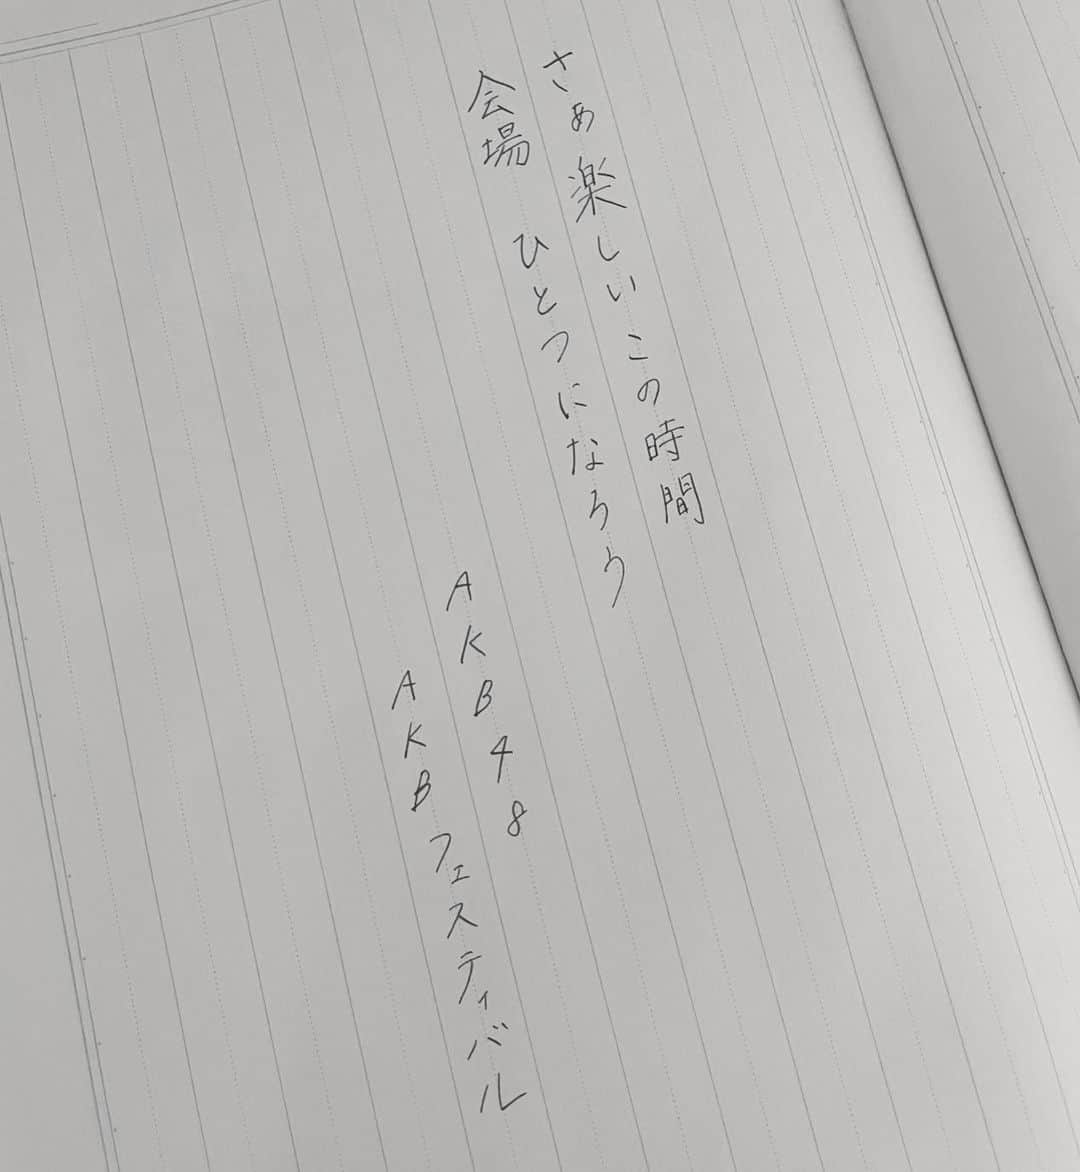 さぁ楽しいこの時間
会場　ひとつになろう
AKB48
AKBフェスティバル